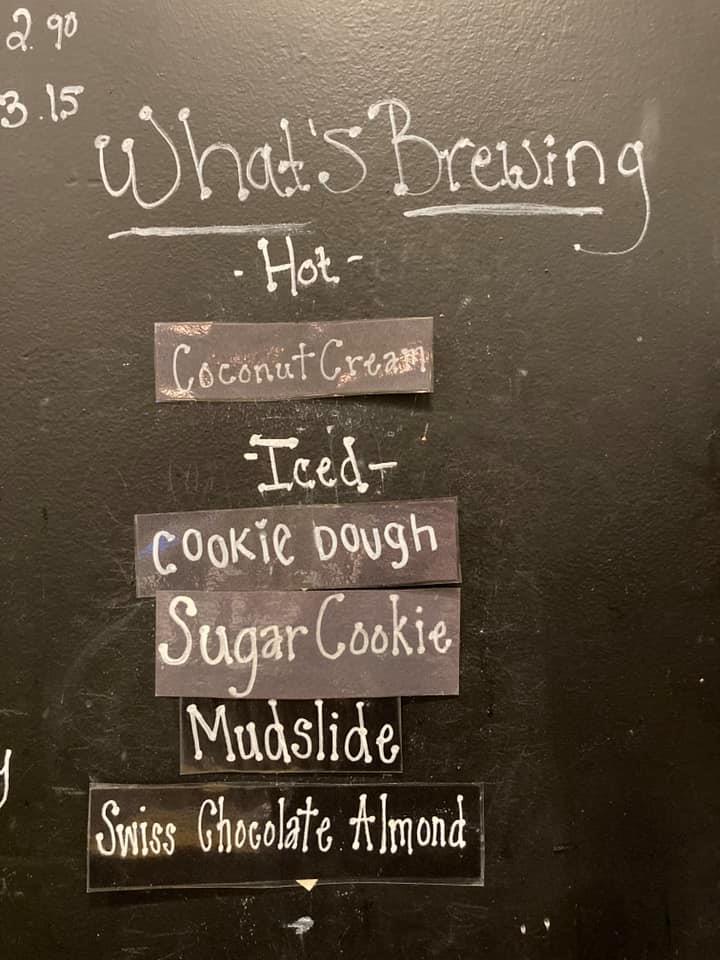 2.90
3.15
What's Brewing
- Hot -
Coconut Cream
- Iced -
COOKiE DOUGh
Sugar Cookie
Mudslide
Swiss Chocolate Almond